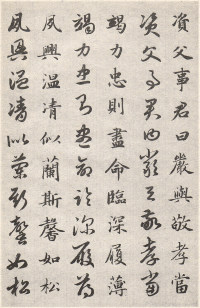 資父事君曰嚴與敬孝當
資父事君曰嚴與敬孝當
竭力忠則盡命臨深履薄
竭力忠則盡命臨深履薄
夙興溫凊似蘭斯馨如松
夙興溫凊似蘭斯馨如松